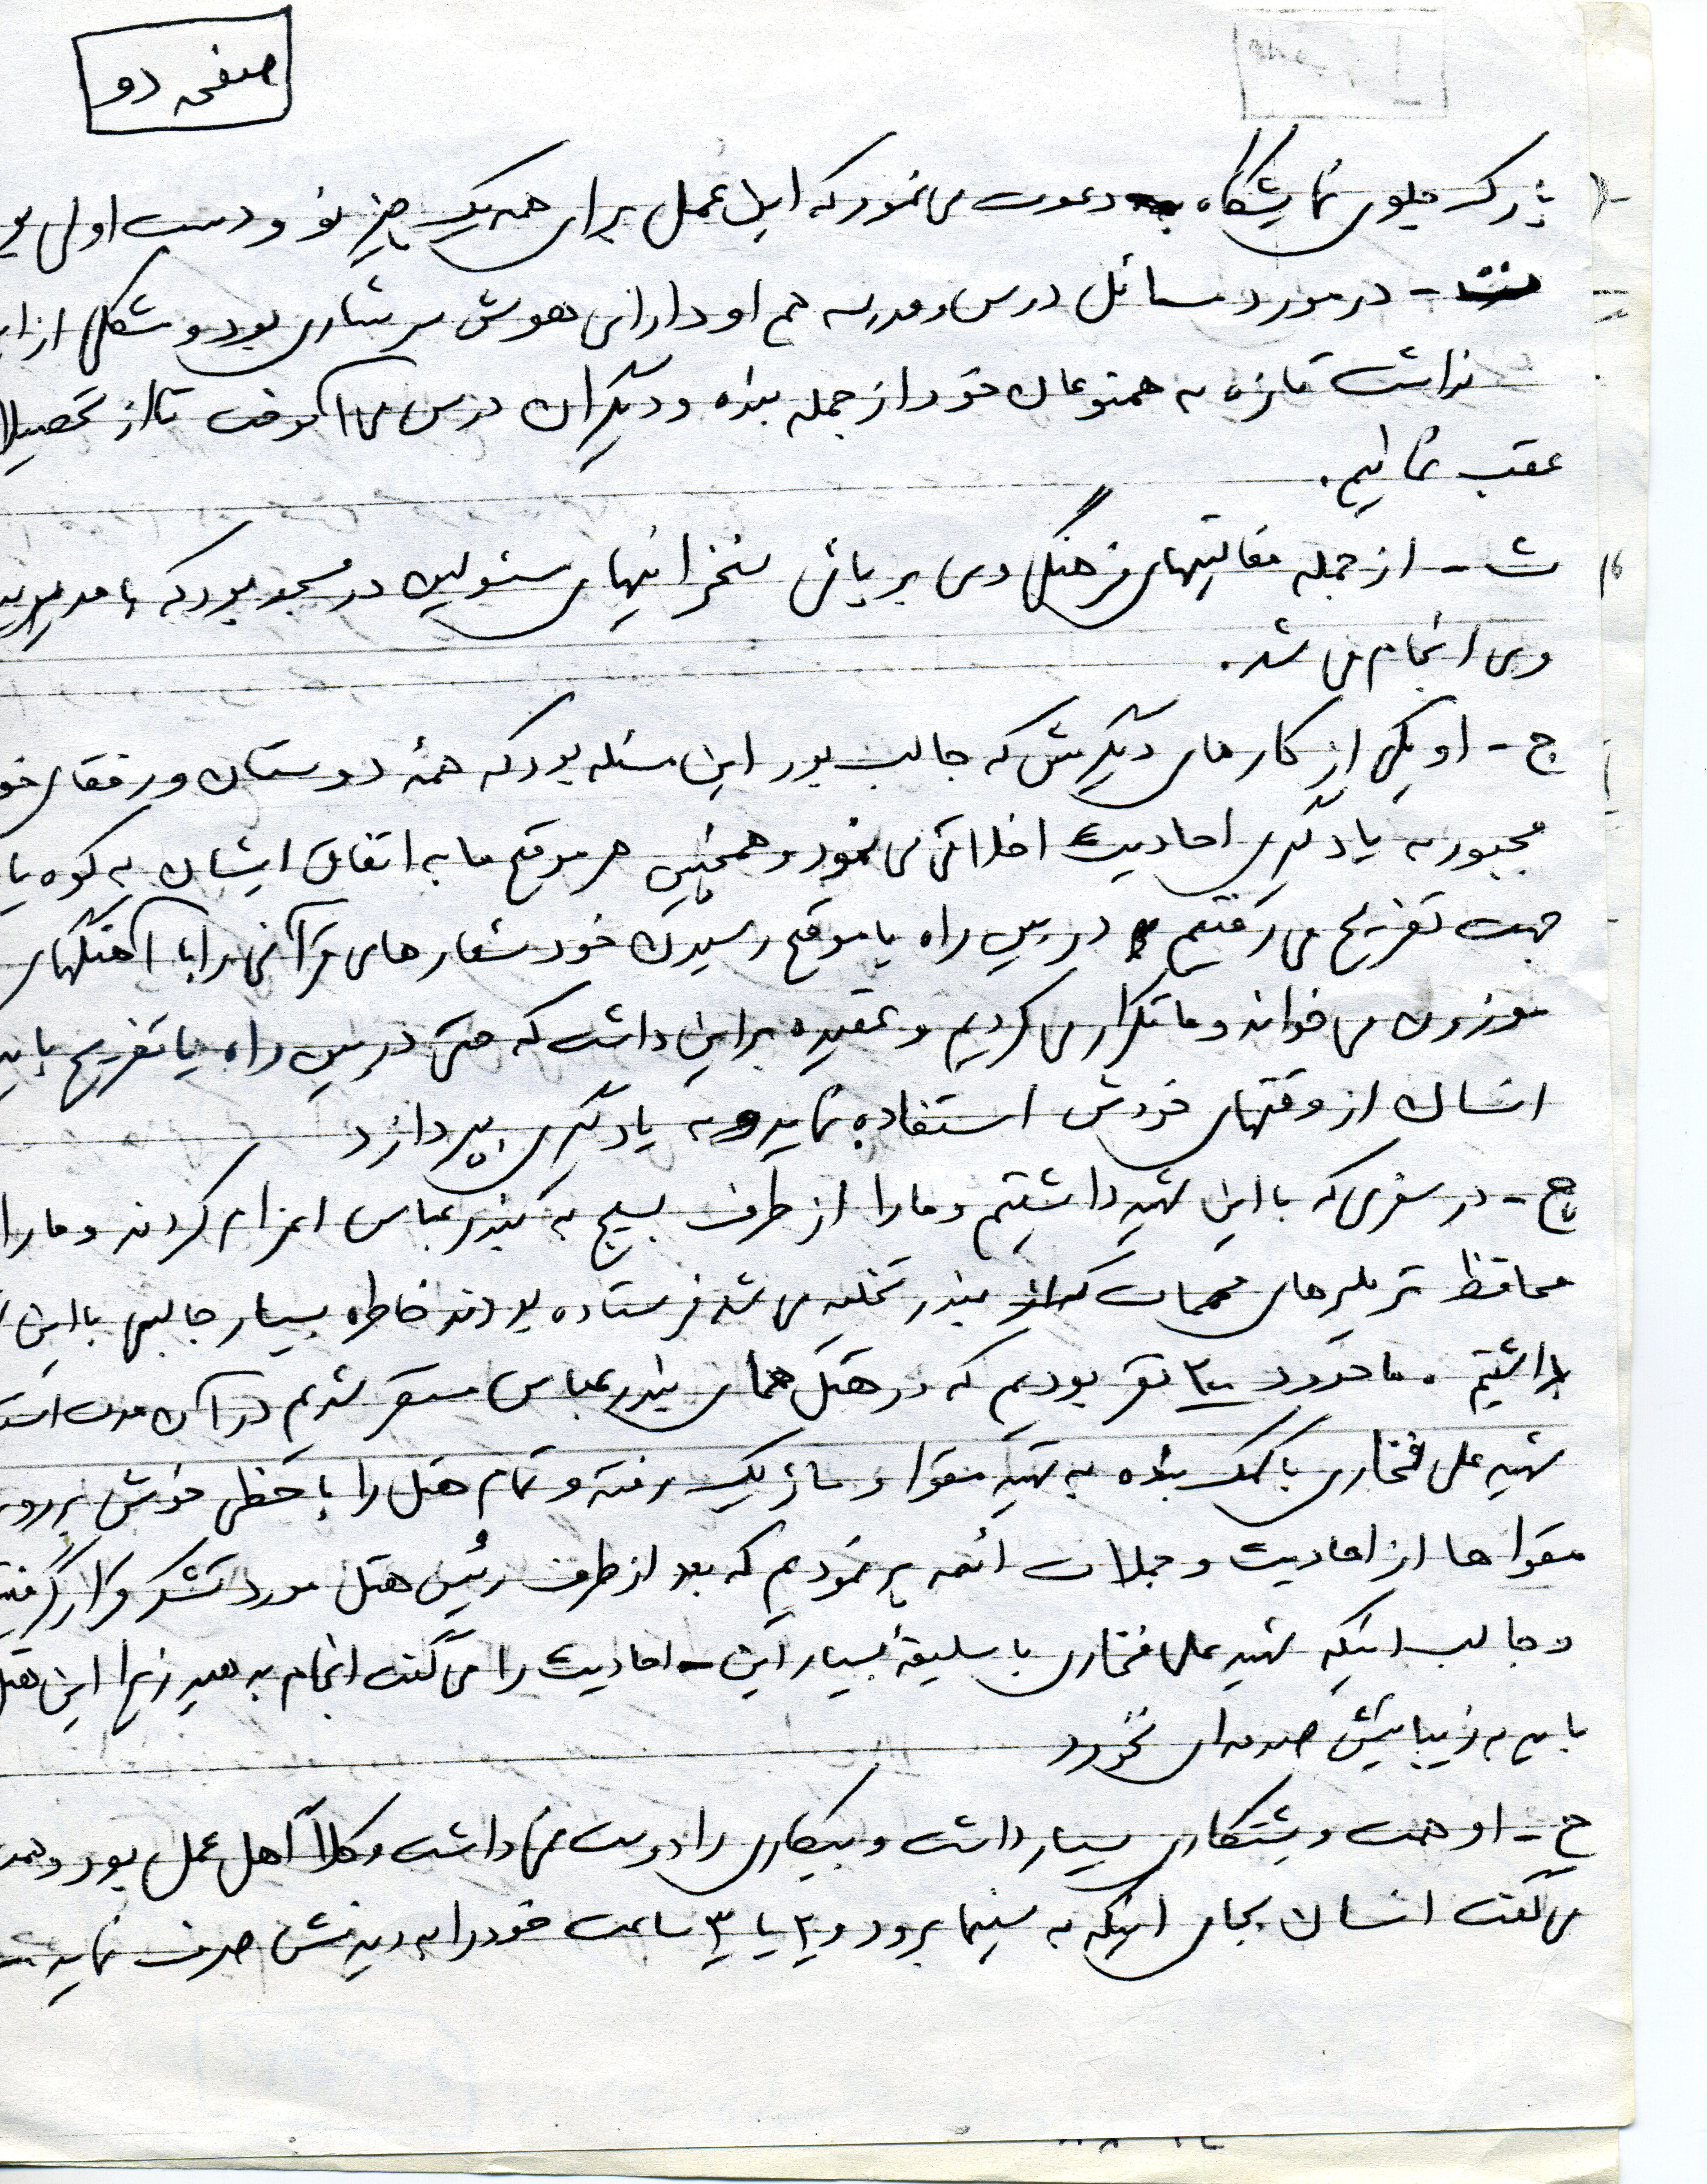 صفحه دو
پارک جلوی نمایشگاه دعوت می نمود که این عمل برای همه یک چیز نو و دست اولی
- در مورد مسائل درس و مدرسه هم او دارای هوش سرشاری بود و مشکلی از
نداشت تازه به همنوعان خود از جمله بنده و دیگران درس می آموخت تا از تحصیلات
عقب نمانیم.
ث - از جمله فعالیتهای فرهنگی وی برپائی سخنرانیهای مسئولین در مسجد بود که با مدیریت
وی انجام می شد.
ج - او یکی از کارهای دیگرش که جالب بود این مسئله بود که همهٔ دوستان و رفقای
مجبور به یادگیری احادیث اخلاقی می نمود و همچنین هر موقع ما به اتفاق ایشان به کوه یا
جهت تفریح می رفتیم در بین راه یا موقع رسیدن خود شعارهای قرآنی را با آهنگهای
موزون می خواند و ما تکرار می کردیم و عقیده بر این داشت که حتی در بین راه یا تفریح باید
انسان از وقتهای خودش استفاده نماید و به یادگیری بپردازد
چ - در سفری که با این شهید داشتیم و ما را از طرف بسیج به بندرعباس اعزام کردند و ما را
محافظ تریلرهای مهمات که از بندر تخلیه می شد فرستاده بودند خاطره بسیار جالبی با این
داشتیم . ما حدود ۲۰۰ نفر بودیم که در هتل همای بندرعباس مستقر شدیم در آن مدت
شهید علی فخاری با کمک بنده به تهیه مقوا و ماژیک رفته و تمام هتل را با خطی خوش بر روی
مقواها از احادیث و جملات ائمه پر نمودیم که بعد از طرف رئیس هتل مورد تشکر قرار
و جالب اینکه شهید علی فخاری با سلیقهٔ بسیار این احادیث را می گفت انجام بدهید زیرا این هتل
باید به زیباییش صدمه ای نخورد
ح - او همت و پشتکاری بسیار داشت و بیکاری را دوست نمی داشت و کلاً اهل عمل بود و
می گفت انسان بجای اینکه به سینما برود و ۲ یا ۳ ساعت خود را به دیدنش صرف نماید